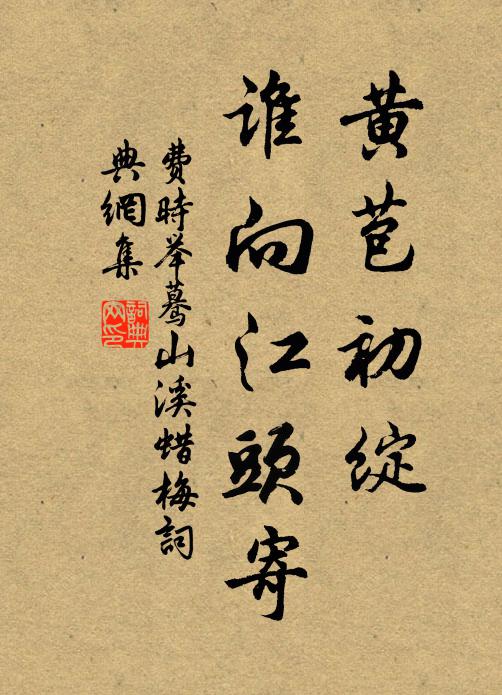 黄苞初綻
誰向江頭寄
費時举驀山溪蜡梅詞
典網集
詞典網印